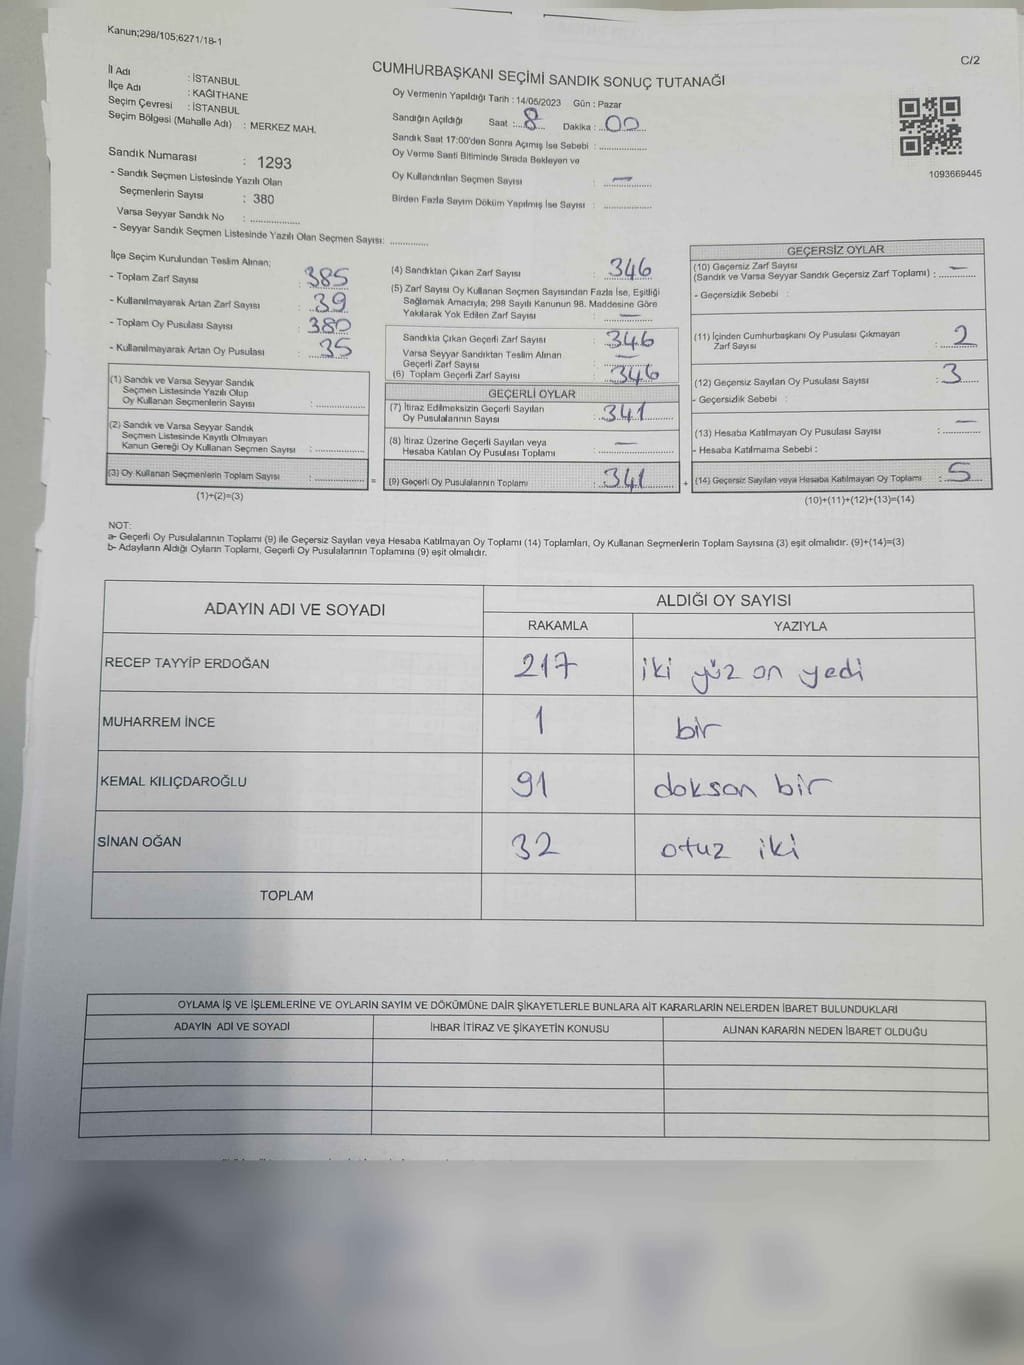 Kanun;298/105;6271/18-1
C/2
CUMHURBAŞKANI SEÇİMİ SANDIK SONUÇ TUTANAĞI
İl Adı : İSTANBUL
İlçe Adı : KAĞITHANE
Seçim Çevresi : İSTANBUL
Seçim Bölgesi (Mahalle Adı) : MERKEZ MAH.
Sandık Numarası : 1293
- Sandık Seçmen Listesinde Yazılı Olan
Seçmenlerin Sayısı : 380
Varsa Seyyar Sandık No : ..............
- Seyyar Sandık Seçmen Listesinde Yazılı Olan Seçmen Sayısı: ............
Oy Vermenin Yapıldığı Tarih : 14/05/2023 Gün : Pazar
Sandığın Açıldığı Saat : 8 Dakika : 00
Sandık Saat 17:00'den Sonra Açımış İse Sebebi : ..............
Oy Verme Saati Bitiminde Sırada Bekleyen ve
Oy Kullandırılan Seçmen Sayısı : —
Birden Fazla Sayım Döküm Yapılmış İse Sayısı : ..............
1093669445
İlçe Seçim Kurulundan Teslim Alınan;
- Toplam Zarf Sayısı : 385
- Kullanılmayarak Artan Zarf Sayısı : 39
- Toplam Oy Pusulası Sayısı : 380
- Kullanılmayarak Artan Oy Pusulası : 35
(1) Sandık ve Varsa Seyyar Sandık
Seçmen Listesinde Yazılı Olup
Oy Kullanan Seçmenlerin Sayısı : ..............
(2) Sandık ve Varsa Seyyar Sandık
Seçmen Listesinde Kayıtlı Olmayan
Kanun Gereği Oy Kullanan Seçmen Sayısı : ..............
(3) Oy Kullanan Seçmenlerin Toplam Sayısı : .............. =
(1)+(2)=(3)
(4) Sandıktan Çıkan Zarf Sayısı : 346
(5) Zarf Sayısı Oy Kullanan Seçmen Sayısından Fazla İse, Eşitliği
Sağlamak Amacıyla; 298 Sayılı Kanunun 98. Maddesine Göre
Yakılarak Yok Edilen Zarf Sayısı : —
Sandıkta Çıkan Geçerli Zarf Sayısı : 346
Varsa Seyyar Sandıktan Teslim Alınan
Geçerli Zarf Sayısı : —
(6) Toplam Geçerli Zarf Sayısı : 346
GEÇERLİ OYLAR
(7) İtiraz Edilmeksizin Geçerli Sayılan
Oy Pusulalarının Sayısı : 341
(8) İtiraz Üzerine Geçerli Sayılan veya
Hesaba Katılan Oy Pusulası Toplamı : —
(9) Geçerli Oy Pusulalarının Toplamı : 341 +
GEÇERSİZ OYLAR
(10) Geçersiz Zarf Sayısı
(Sandık ve Varsa Seyyar Sandık Geçersiz Zarf Toplamı) : —
- Geçersizlik Sebebi :
(11) İçinden Cumhurbaşkanı Oy Pusulası Çıkmayan
Zarf Sayısı : 2
(12) Geçersiz Sayılan Oy Pusulası Sayısı : 3
- Geçersizlik Sebebi :
(13) Hesaba Katılmayan Oy Pusulası Sayısı : —
- Hesaba Katılmama Sebebi :
(14) Geçersiz Sayılan veya Hesaba Katılmayan Oy Toplamı : 5
(10)+(11)+(12)+(13)=(14)
NOT:
a- Geçerli Oy Pusulalarının Toplamı (9) ile Geçersiz Sayılan veya Hesaba Katılmayan Oy Toplamı (14) Toplamları, Oy Kullanan Seçmenlerin Toplam Sayısına (3) eşit olmalıdır. (9)+(14)=(3)
b- Adayların Aldığı Oyların Toplamı, Geçerli Oy Pusulalarının Toplamına (9) eşit olmalıdır.
ADAYIN ADI VE SOYADI ALDIĞI OY SAYISI
RAKAMLA YAZIYLA
RECEP TAYYİP ERDOĞAN 217 iki yüz on yedi
MUHARREM İNCE 1 bir
KEMAL KILIÇDAROĞLU 91 doksan bir
SİNAN OĞAN 32 otuz iki
TOPLAM
OYLAMA İŞ VE İŞLEMLERİNE VE OYLARIN SAYIM VE DÖKÜMÜNE DAİR ŞİKAYETLERLE BUNLARA AİT KARARLARIN NELERDEN İBARET BULUNDUKLARI
ADAYIN ADI VE SOYADI İHBAR İTİRAZ VE ŞİKAYETİN KONUSU ALINAN KARARIN NEDEN İBARET OLDUĞU